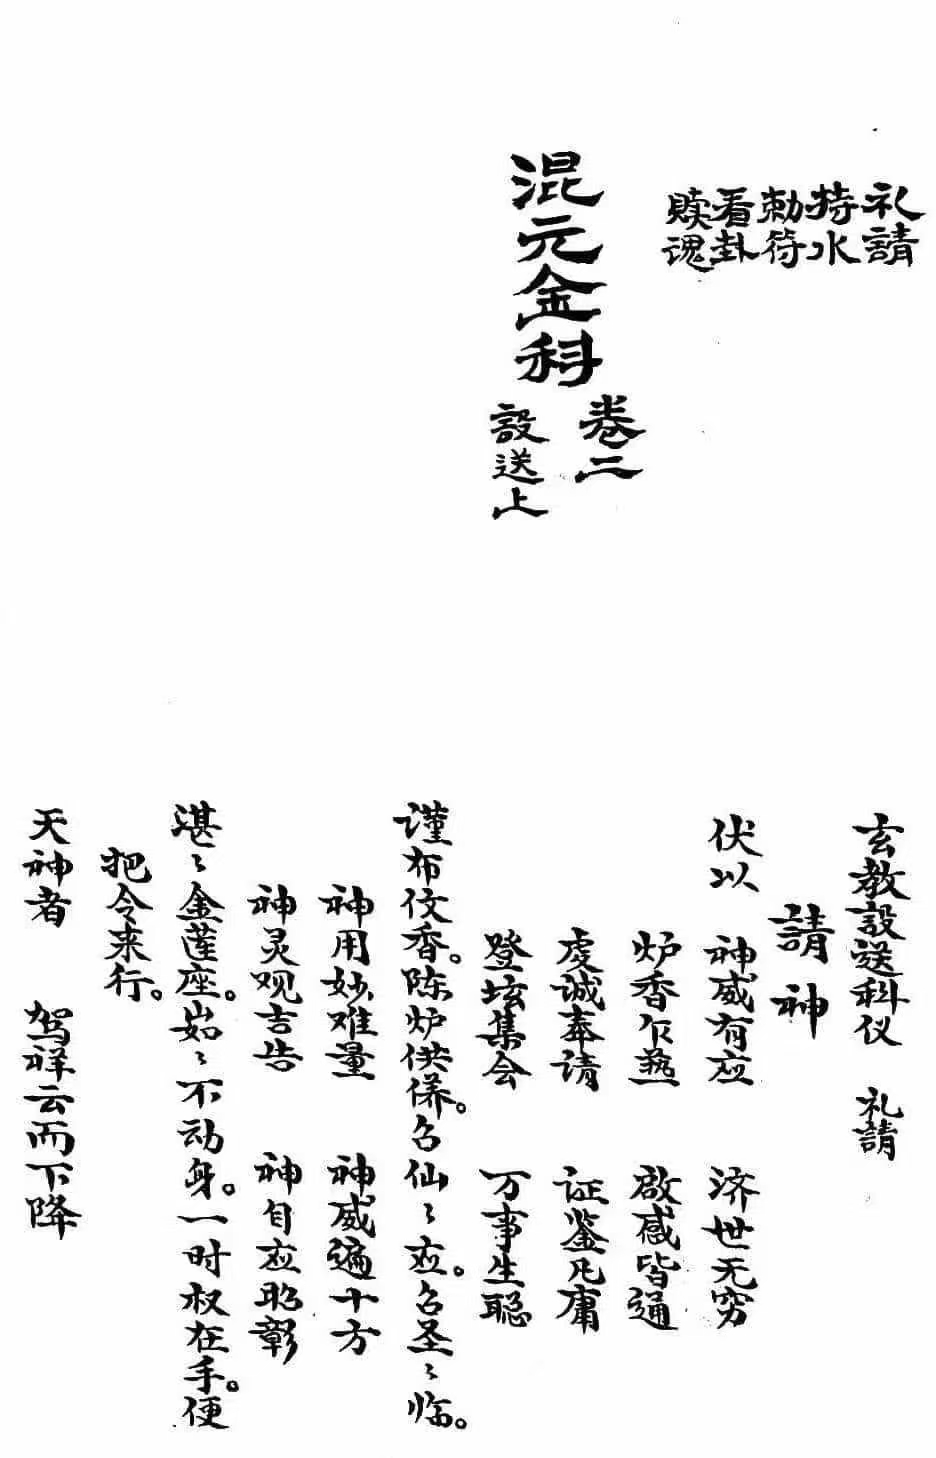 礼請
持水
勅符
看卦
贖魂
混元金科
卷二
設送上
玄教設送科仪 礼請
請神
伏以 神威有应 济世无穷
炉香乍爇 啟感皆通
虔诚奉请 证鉴凡庸
登坛集会 万事生聪
谨布伩香。陈炉供养。召仙〻应。召圣〻临。
神用妙难量 神威遍十方
神灵观吉告 神自应昭彰
湛〻金莲座。如〻不动身。一时权在手。便
把令来行。
天神者 驾祥云而下降